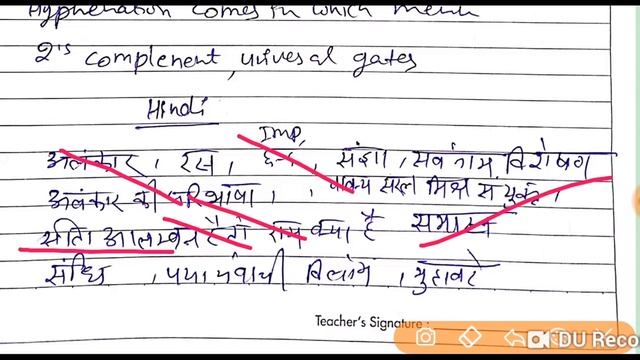 Hyphenation comes in which menu
2's complement, univesal gates
Hindi
Imp,
अलंकार, रस, संज्ञा, सर्वनाम, विशेषण
अलंकार की परिभाषा, वाक्य सरल मिश्र संयुक्त,
सीता आलम्बन है तो राम क्या है समास
संधि, पर्यायवाची विलोम, मुहावरे
Teacher's Signature :
DU Reco